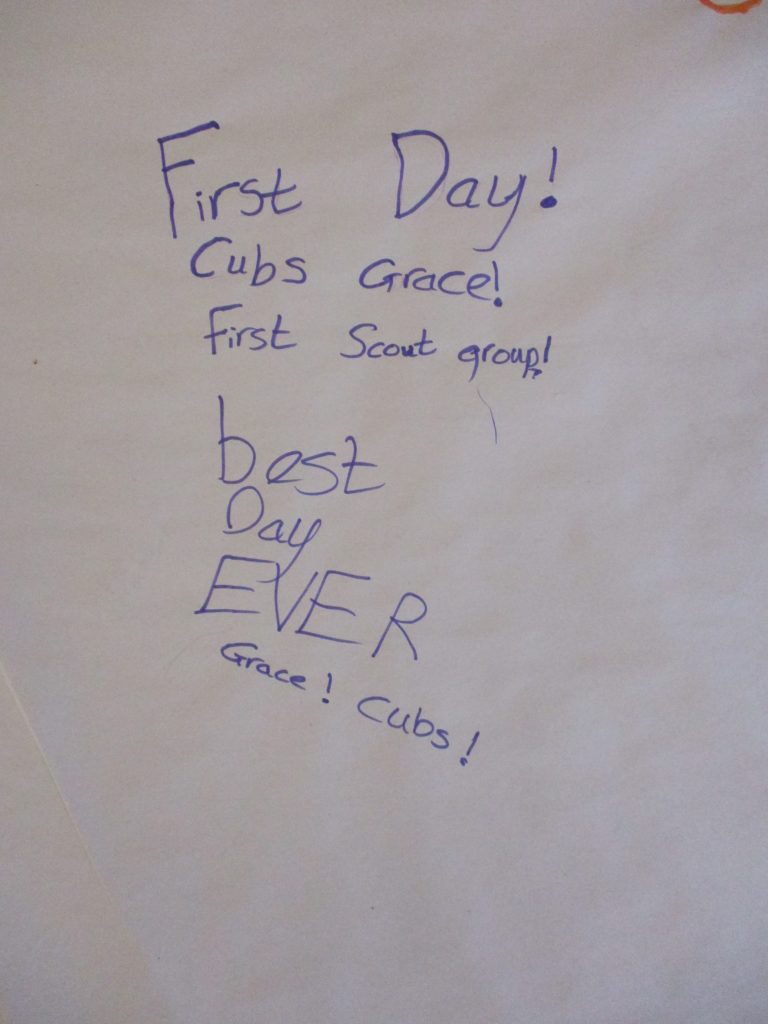 First Day!
Cubs Grace!
First Scout group!
best
Day
EVER
Grace! Cubs!